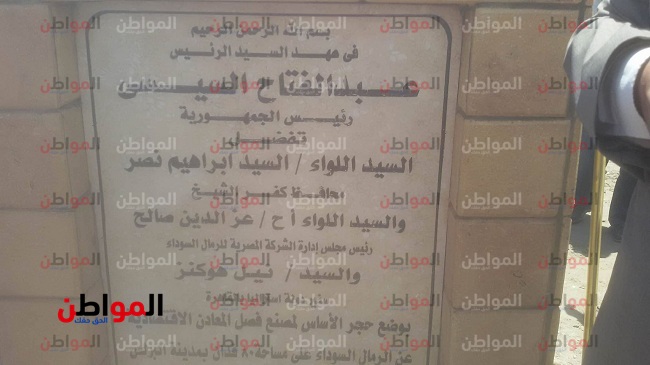 بسم الله الرحمن الرحيم
فى عهد السيد الرئيس
عبدالفتاح السيسى
رئيس الجمهورية
تفضل
السيد اللواء / السيد ابراهيم نصر
محافظ كفر الشيخ
والسيد اللواء أ ح / عز الدين صالح
رئيس مجلس إدارة الشركة المصرية للرمال السوداء
والسيد / نيل هوكنز
سفير دولة استراليا بالقاهرة
بوضع حجر الأساس لمصنع فصل المعادن الاقتصادية
عن الرمال السوداء على مساحة ٨٠ فدان بمدينة البرلس
المواطن
الحق حقك